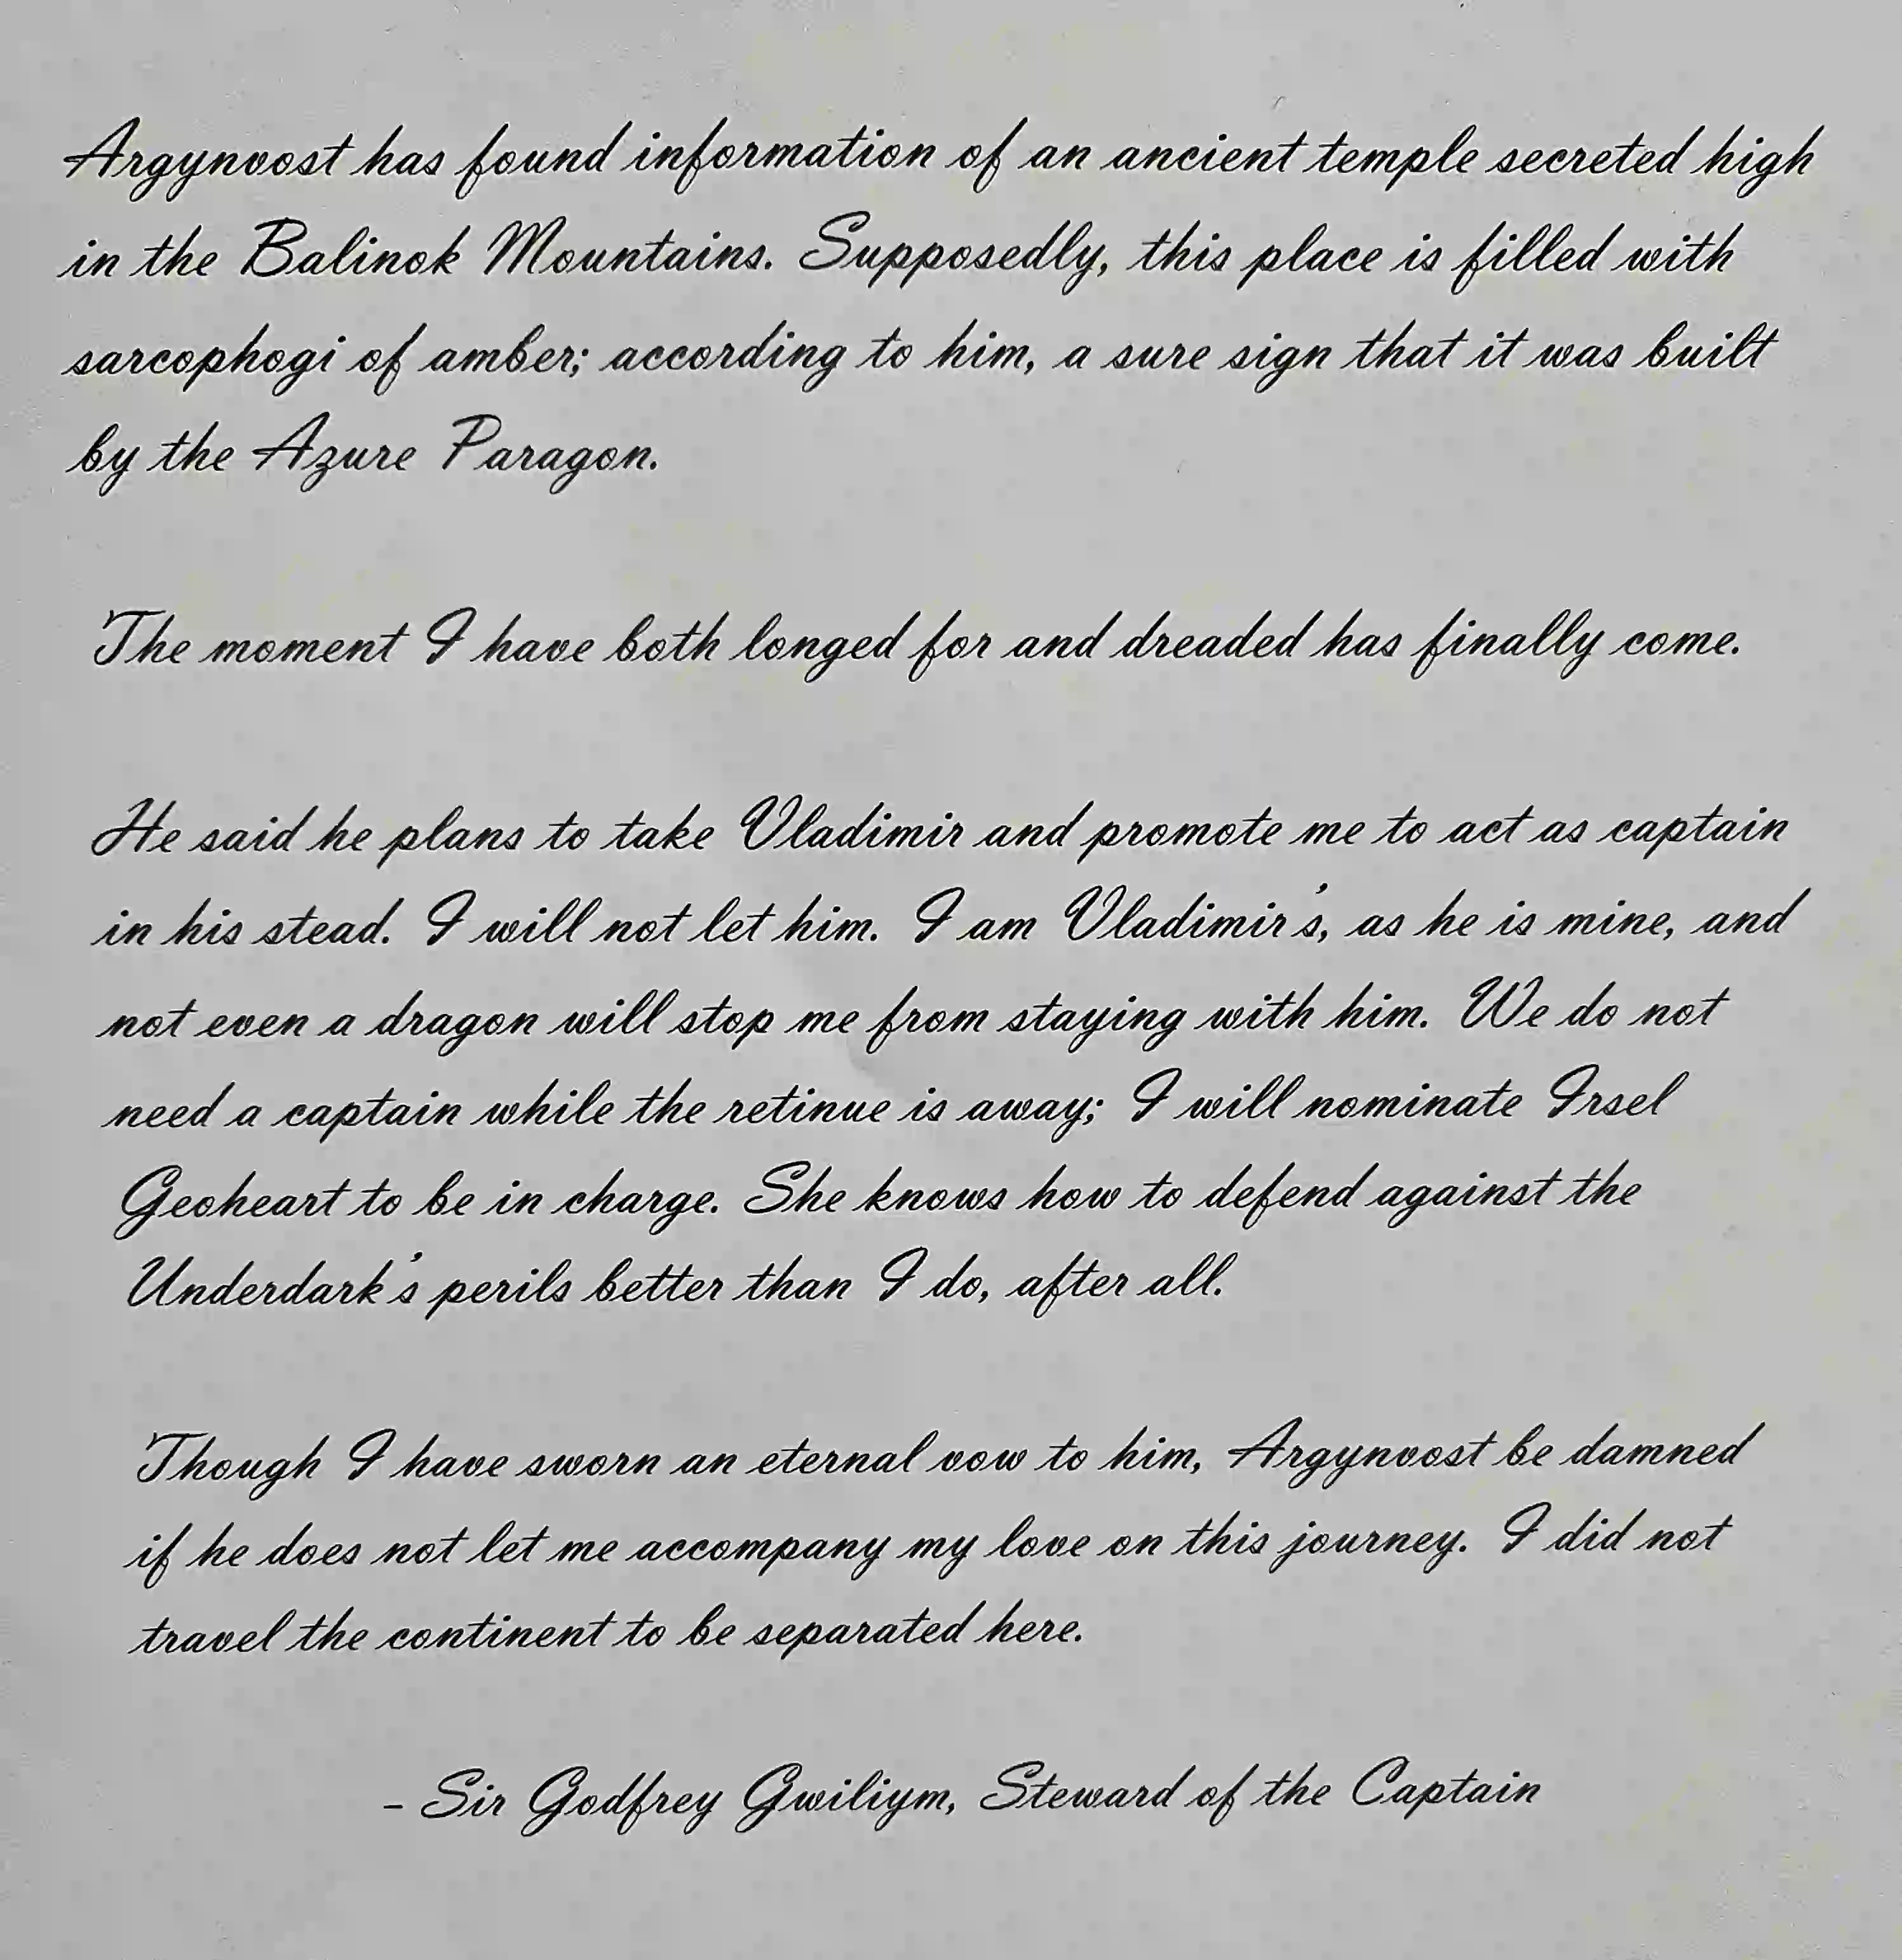 Argynvost has found information of an ancient temple secreted high
in the Balinok Mountains. Supposedly, this place is filled with
sarcophogi of amber; according to him, a sure sign that it was built
by the Azure Paragon.
The moment I have both longed for and dreaded has finally come.
He said he plans to take Vladimir and promote me to act as captain
in his stead. I will not let him. I am Vladimir's, as he is mine, and
not even a dragon will stop me from staying with him. We do not
need a captain while the retinue is away; I will nominate Irsel
Geoheart to be in charge. She knows how to defend against the
Underdark's perils better than I do, after all.
Though I have sworn an eternal vow to him, Argynvost be damned
if he does not let me accompany my love on this journey. I did not
travel the continent to be separated here.
- Sir Godfrey Gwiliym, Steward of the Captain